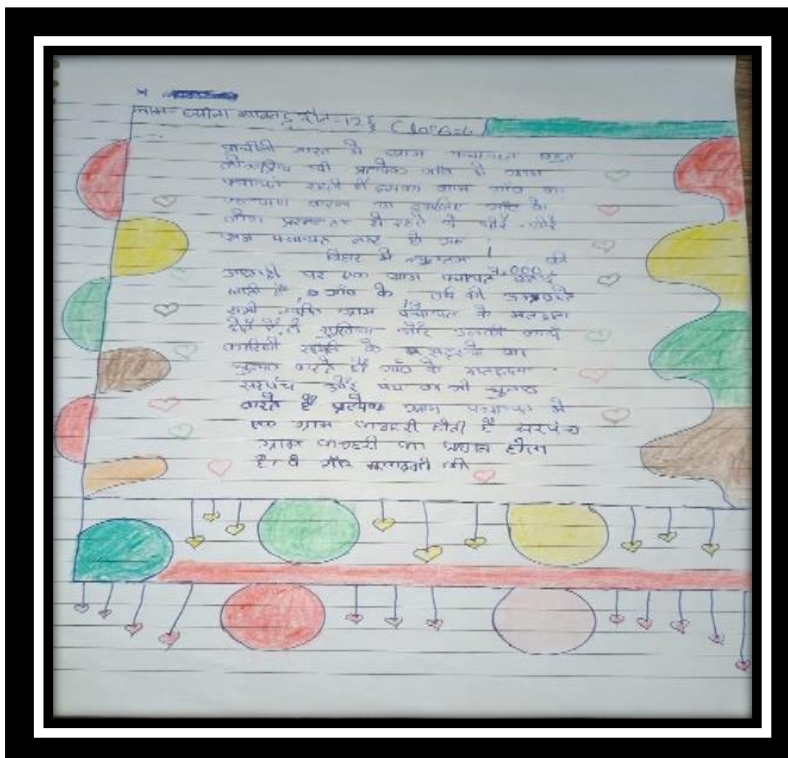 नाम- रोल-12 Class-6
प्राचीन भारत में ग्राम पंचायत बहुत
लोकप्रिय थी प्रत्येक गाँव में ग्राम
पंचायतें रहती थीं इसका काम गाँव का
कल्याण करना था इसलिए गाँव के
लोग प्रसन्नता से रहते थे धीरे-धीरे
ग्राम पंचायत नष्ट हो गया
बिहार में न्यूनतम की
आबादी पर एक ग्राम पंचायत 7,000 बनाई
जाती है, गाँव के वर्ष की उम्र
सभी व्यक्ति ग्राम 18 पंचायत के मतदाता
होते हैं, वे मुखिया और उनकी कार्य
कारिणी समिति के सदस्य का
चुनाव करते हैं गाँव के मतदाता
सरपंच और पंच का भी चुनाव
करते हैं प्रत्येक ग्राम पंचायत में
एक ग्राम कचहरी होती है सरपंच
ग्राम कचहरी का प्रधान होता
है। वे और की